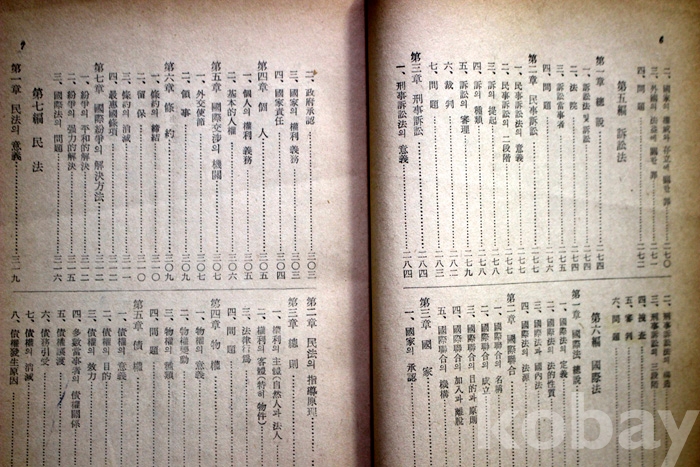 6
二、國家의 權威와 存立에 關한 罪……二七〇
四、問題……二七二
第五編 訴訟法
第一章 總說……二七四
一、訴訟法과 訴訟……二七四
二、法院
三、訴訟當事者……二七五
四、問題
第二章 民事訴訟
一、民事訴訟法의 意義
二、民事訴訟의 二段階
三、訴의 提起
四、訴의 種類
五、訴訟의 審理
六、裁判
七、問題
第三章 刑事訴訟
一、刑事訴訟法의 意義……二八四
二、刑事訴訟法의 構造
三、刑事訴訟의 三段階
四、搜査
五、審判
六、問題
第六編 國際法
第一章 國際法 總說
一、國際法의 定義
二、國際法의 法的性質
三、國際法과 國內法
四、國際法의 法源
第二章 國際聯合
一、國際聯合의 名稱
二、國際聯合의 成立
三、國際聯合의 目的과 原則
四、國際聯合의 加入과 離脫
五、國際聯合의 機構
第三章 國家
一、國家의 承認
7
二、政府承認……三〇三
三、國家의 權利 義務……三〇三
四、國家責任……三〇四
第四章 個人……三〇五
一、個人의 權利 義務……三〇五
二、基本的人權……三〇六
第五章 國際交涉의 機關……三〇七
一、外交使節
二、領事
第六章 條約……三〇九
一、條約의 締結
二、留保……三一〇
三、條約의 消滅
四、最惠國條項
第七章 國際紛爭의 解決方法……三一二
一、紛爭의 平和的解決
二、紛爭의 强力的解決
三、國際法의 問題……三一六
第七編 民法
第一章 民法의 意義……三一九
第二章 民法의 指導原理
第三章 總則
一、權利의 主體(自然人과 法人)
二、權利의 客體(特히 物件)
三、法律行爲
四、問題
第四章 物權
一、物權의 意義
二、物權變動
三、物權의 種類
四、問題
第五章 債權
一、債權의 意義
二、債權의 目的
三、債權의 效力
四、多數當事者의 債權關係
五、債權讓渡
六、債務引受
七、債權의 消滅
八、債權發生原因
kobay